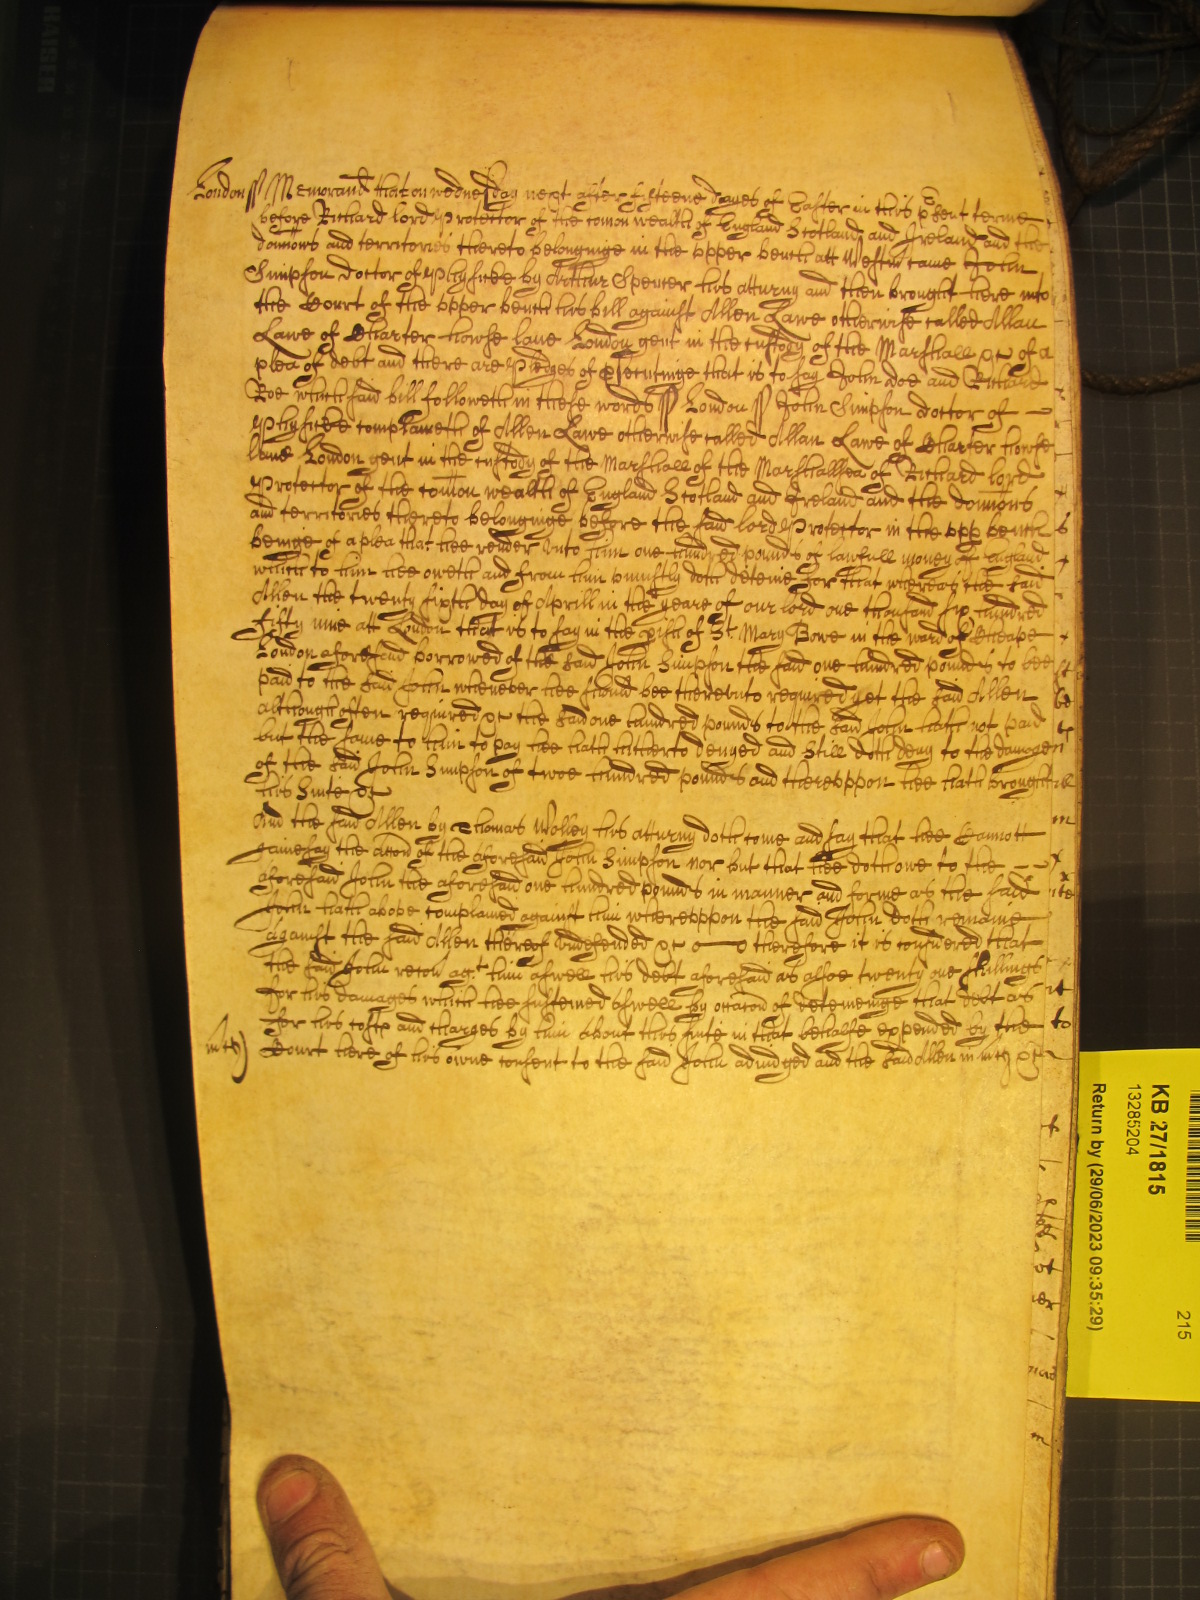 London ss Memorand that on wednesday next after fifteene dayes of Easter in this psent terme
before Richard lord Protector of the comon wealth of England Scotland and Ireland and the
domions and territories thereto belonginge in the upper bench att Westm came John
Simpson doctor of Phisicke by Arthur Spencer his atturny and then brought here into
the Court of the upper bench his bill against Allen Lawe otherwise called Allan
Lawe of Charter howse lane London gent in the custody of the Marshall &c of a
plea of debt and there are Pledges of p'secutinge that is to say John doe and Richard
Roe which said bill followeth in these words ss London ss John Simpson doctor of
Phisicke complaineth of Allen Lawe otherwise called Allan Lawe of Charter howse
lane London gent in the custody of the Marshall of the Marshallsea of Richard lord
Protector of the comon wealth of England Scotland and Ireland and the domions
and territories thereto belonginge before the said lord Protector in the upp bench
beinge of a plea that hee render unto him one hundred pounds of lawfull money of England
which to him hee oweth and from him uniustly doth deteine for that whereas the said
Allen the twenty sixth day of Aprill in the yeare of our lord one thousand six hundred
fifty nine att London that is to say in the pish of St. Mary Bowe in the ward of Cheape
London aforesaid borrowed of the said John Simpson the said one hundred pounds to bee
paid to the said John whenever hee should bee thereunto required yet the said Allen
although often required &c the said one hundred pounds to the said John hath not paid
but the same to him to pay hee hath hitherto denyed and still doth deny to the damage
of the said John Simpson of twoe hundred pounds and thereuppon hee hath brought
his suite &c
And the said Allen by Thomas Wolley his atturny doth come and say that hee cannott
gainesay the accon of the aforesaid John Simpson nor but that hee doth owe to the
aforesaid John the aforesaid one hundred pounds in manner and forme as the said
John hath above complained against him whereuppon the said John doth remaine
against the said Allen thereof undefended &c therefore it is considered that
the said John recov agt him aswell his debt aforesaid as alsoe twenty one shillings
for his damages which hee susteined aswell by occacon of deteininge that debt as
for his costs and charges by him about this suite in that behalfe expended by the
mcy
Court here of his owne consent to the said John adiudged and the said Allen in mcy &c
KB 27/1815
13285204
Return by (29/06/2023 09:35:29)
215